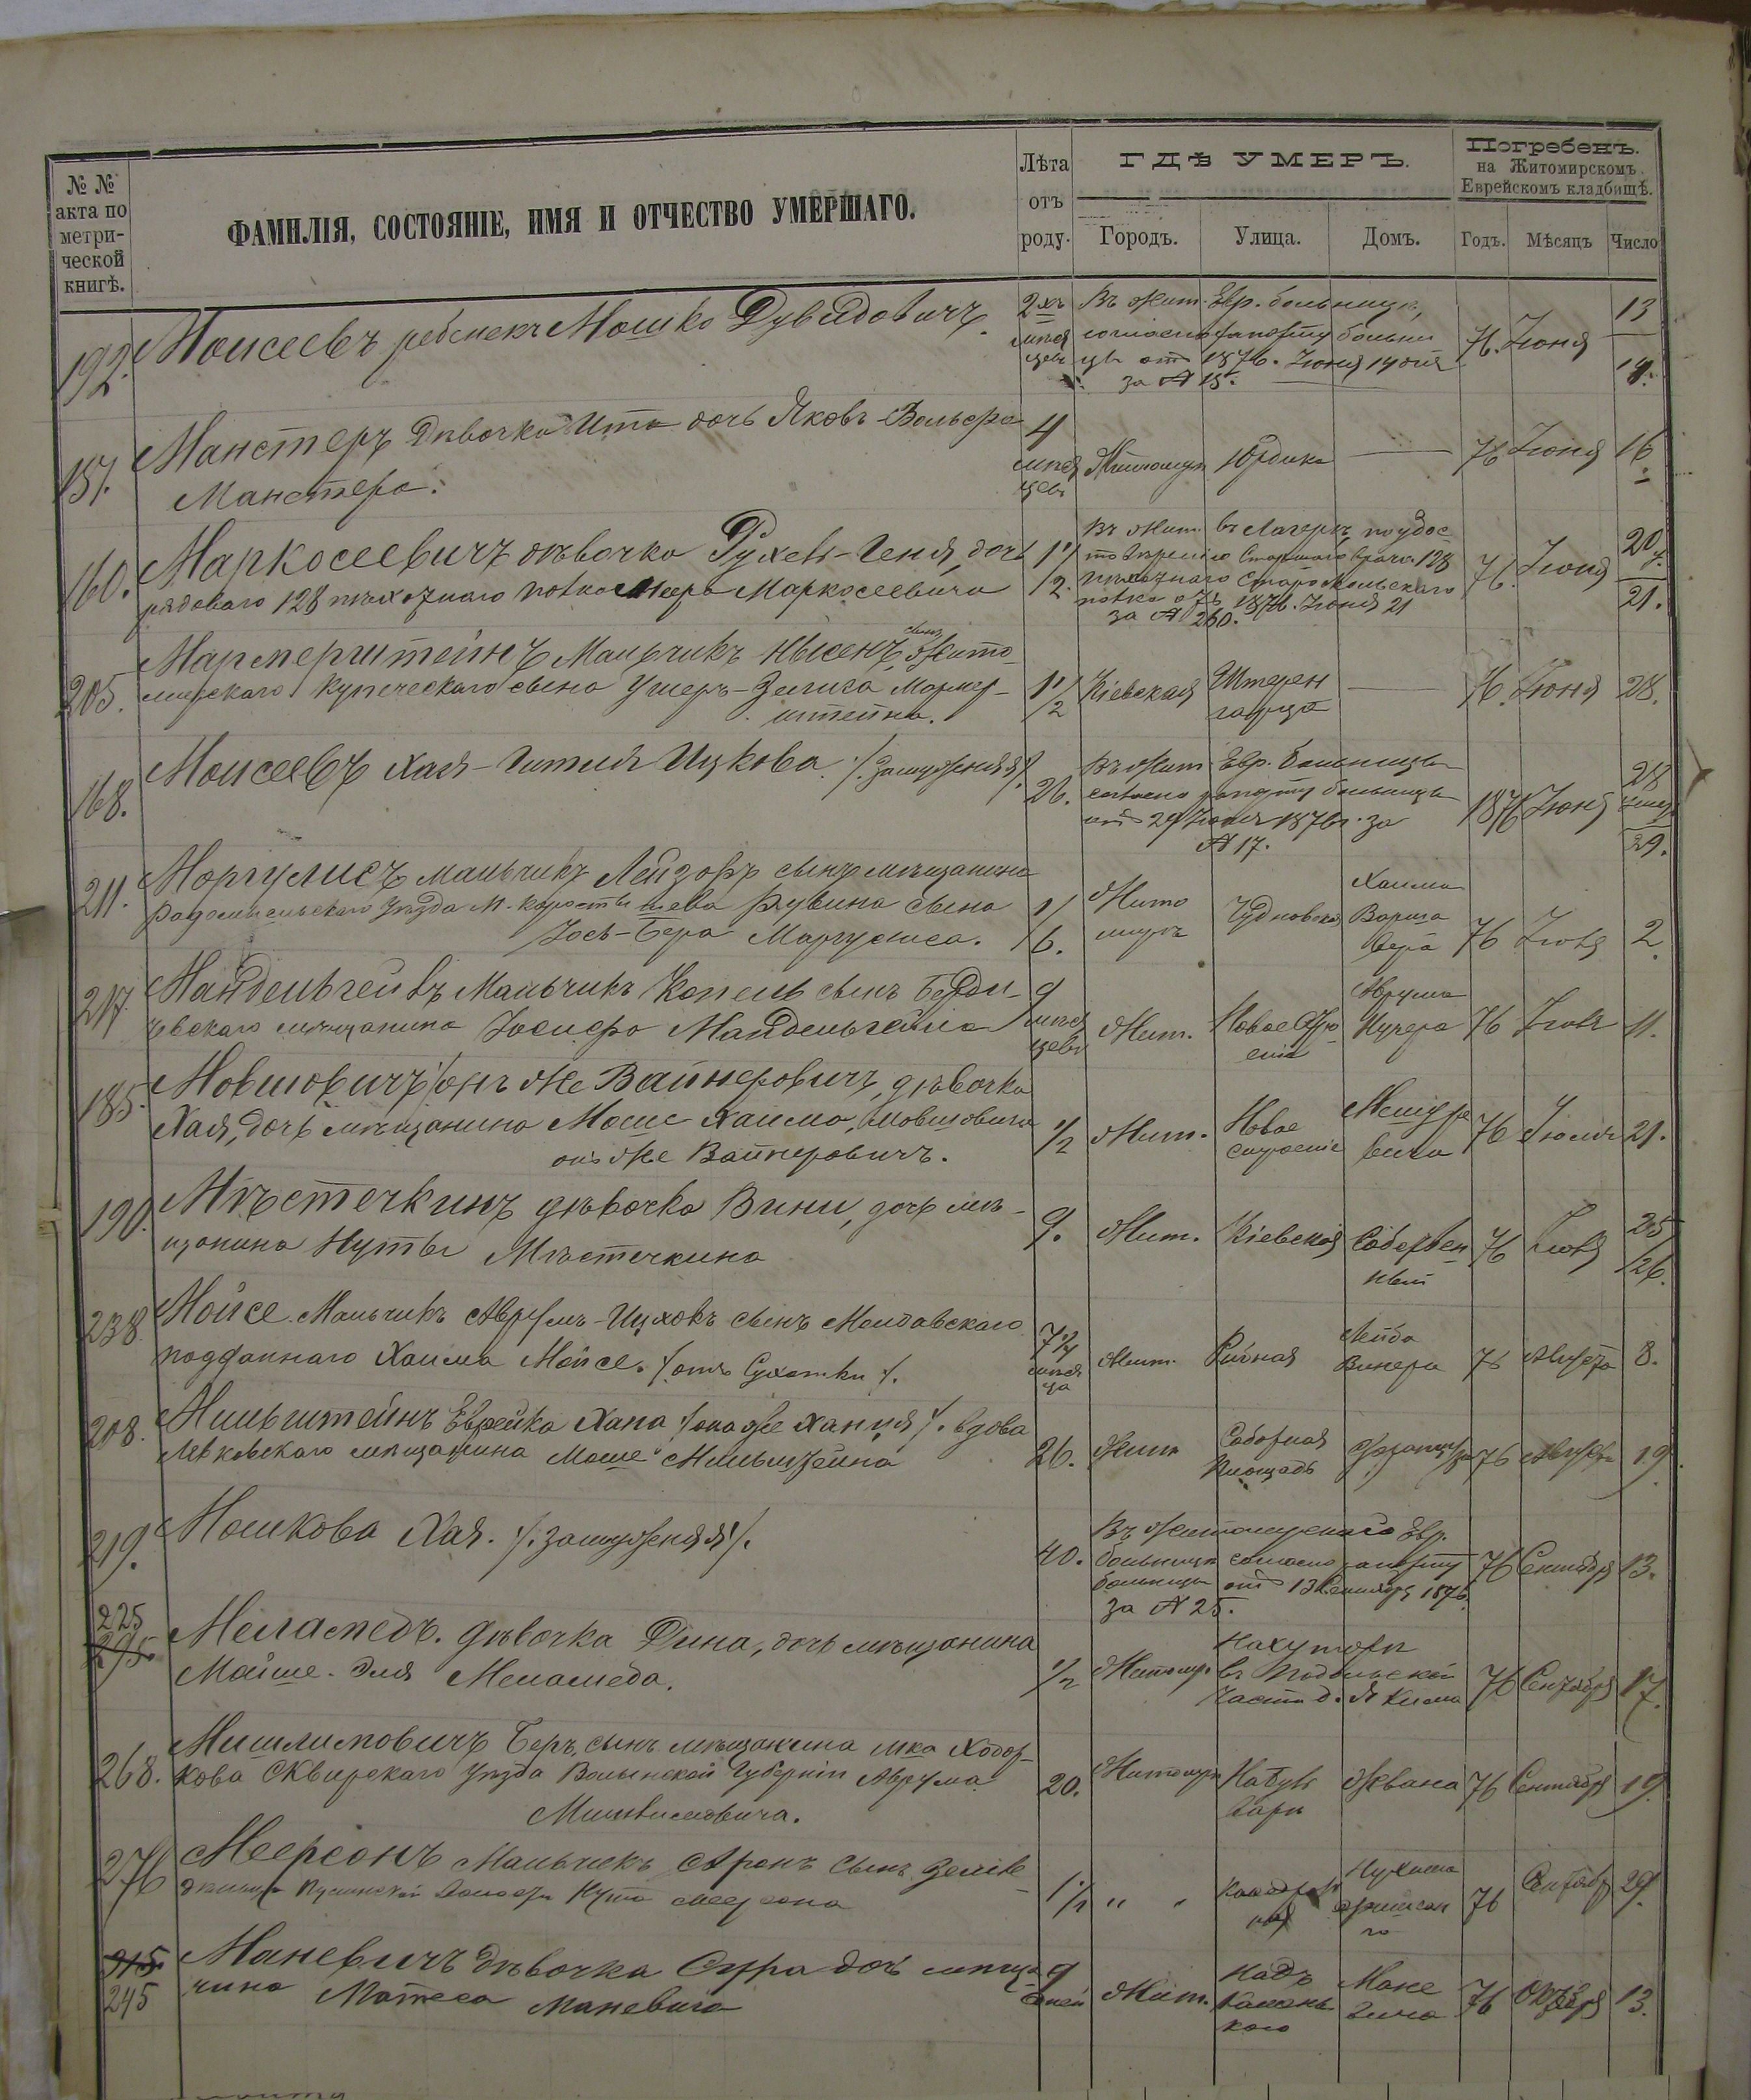 № №
акта по
метри-
ческой
книгѣ.
ФАМИЛІЯ, СОСТОЯНІЕ, ИМЯ И ОТЧЕСТВО УМЕРШАГО.
Лѣта
отъ
роду.
ГДѢ УМЕРЪ.
Городъ.
Улица.
Домъ.
Погребенъ.
на Житомирскомъ
Еврейскомъ кладбищѣ.
Годъ.
Мѣсяцъ
Число
192. Моисеевъ ребенекъ Мошко Дувидовичъ. 2хъ мѣся цевъ
Въ Жит. Евр. больницѣ,
согласно рапорту больни
цы отъ 1876. Іюня 14 дня
за № 15. 76. Іюня 13 14.
157. Манстеръ Дѣвочка Ита дочь Яковъ-Вольфа
Манстера. 4 мѣся цевъ Житомиръ Юрдика — 76 Іюня 16
160. Маркосеевичъ дѣвочка Рухев-Геня, дочь
рядоваго 128 пѣхотнаго полка Меера Маркосеевича 1 1/2.
Въ Жит. въ Лагерѣ, по удос-
товѣренію Старшаго Врача 128
пѣхотнаго Старооскольскаго
полка отъ 1876. Іюня 21
за № 260. 76. Іюня 20 21.
205. Мармерштейнъ Мальчикъ Нысенъ, сынъ Жито-
мирскаго Купеческаго сына Ушеръ-Зелига Мармер-
штейна. 1 1/2 Кіевская Штерен гарца — 76. Іюня 28.
168. Моисеевъ Хая-Гитля Ицкова ./. замужняя ./. 26.
Въ Жит. Евр. больницѣ
согласно рапорту больницы
отъ 29 Іюня 1876г. за
№ 17. 1876 Іюня 28 29.
211. Моргулисъ мальчикъ Лейзоръ сынъ мѣщанина
Радомысльскаго уѣзда м. Коростышева Рувина сына
Іось-Бера Маргулиса. 1/6. Жито миръ Чудновская Хаима 76 2.
217. Мандельгеймъ Мальчикъ Копель сынъ Берди-
чевскаго мѣщанина Іосифа Мандельгейма 9 мѣся цевъ Жит. Новое Аврума Кучера 76 11.
185. Мовшовичъ онъ же Вайнеровичъ, дѣвочка
Хая, дочь мѣщанина Моше-Хаима, Мовшовича
онъ же Вайнеровичъ. 1/2 Жит. Новое строеніе 76 Іюля 21.
190. Мѣстечкинъ дѣвочка Вини, дочь мѣ-
щанина Нуты Мѣстечкина 9. Жит. Кіевская Собствен ный 76 Іюля 25/26.
238. Мойсе. Мальчикъ Аврумъ-Ицхокъ сынъ Молдавскаго
подданнаго Хаима Мойсе. ./. отъ Сухотки ./. 7 1/4 мѣся ца Жит. Рибная Лейба Винера 76 Августа 8.
208. Мильштейнъ Еврейка Хана ./. она же Ханця ./. вдова
Левковскаго мѣщанина Моше Мильштейна 26. Жит. Соборная Площадь 76 Августа 19.
219. Мошкова Хая. ./. замужняя ./. 40.
Въ Житомирской Евр.
больницѣ согласно рапорту
больницы отъ 13 Сентября 1876.
за № 25. 76 Сентября 13.
225
295. Меламедъ. дѣвочка Дина, дочь мѣщанина
Мойше-Эля Меламеда. 1/2 Житомиръ
На хуторѣ
въ Подольской
части д. 76 Сентября 17.
268. Мишлимовичъ Беръ, сынъ мѣщанина мка Ходор-
кова Сквирскаго уѣзда Волынской Губерніи Аврума
20. Житомиръ Жвана 76 Сентября 19.
276 Меерсонъ Мальчикъ Аронъ Сынъ
Меерсона 1 1/2 " " 76 29.
315
245 Маневичъ Дѣвочка Сура дочь мѣща-
нина Матеса Маневича 9 дней Жит. Надъ Каменкою Мане вича 76 Октября 13.